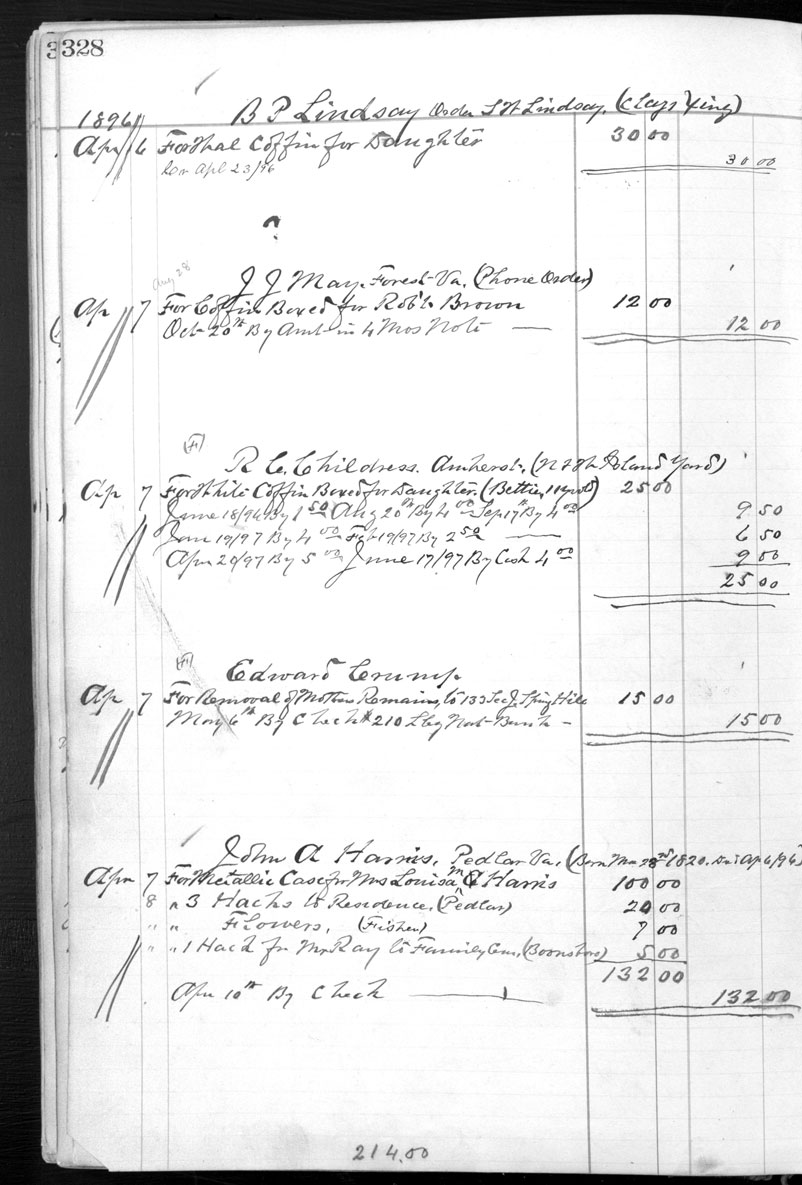 328
1896 B P Lindsay Order S W Lindsay, (Clays Xing)
Apr 6 For Oval Coffin for Daughter 30 00
Apl 23/96 30 00
?
Aug 28
J J May. Forest Va. (Phone Order)
Ap 7 For Coffin Boxed for Robt. Brown 12 00
Oct 20th By Amt in 4 Mos Note — 12 00
(F)
R C. Childress. Amherst, (Island Yard)
Ap 7 For White Coffin Boxed for Daughter. (Bettie, ) 25 00
June 18/96 By 1 50 Aug 20th By 4 00 Sep 17th By 4 00 9 50
Jan 19/97 By 4 00 Feb 19/97 By 2 50 — 6 50
Apr 20/97 By 5 00 June 17/97 By Cash 4 00 9 00
25 00
(F)
Edward Crump
Ap 7 For Removal of Mothers Remains to 133 Sec J Spring Hill 15 00
May 6th By Check #210 Lbg Nat Bank – 15 00
John A Harris, Pedlar Va, (Born Mar 28 1820. Died Ap 6/96)
Apr 7 For Metallic Case for Mrs Louisa M Harris 100 00
8 " 3 Hacks to Residence, (Pedlar) 20 00
" " Flowers, (Fisher) 7 00
" " 1 Hack for Mr Ray to Family Cem, (Boonsboro) 5 00
132 00
Apr 10th By Check — 132 00
214.00